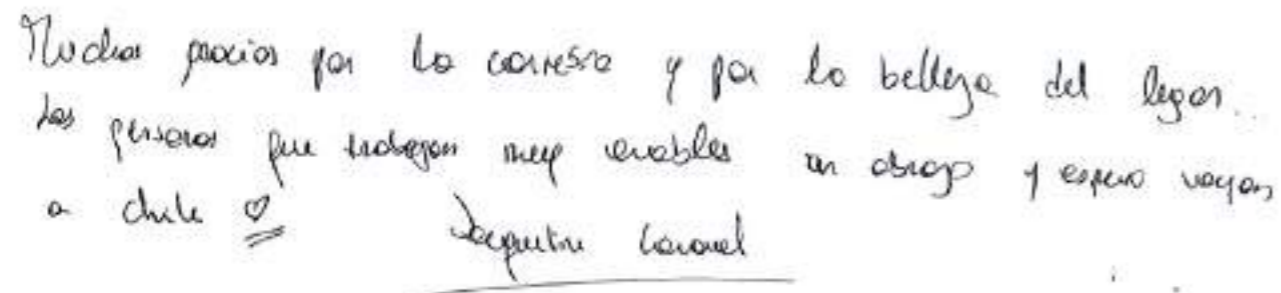 Muchas gracias por la cortesía y por la belleza del lugar.
Las personas que trabajan muy amables un abrazo y espero vayan
a chile ♡